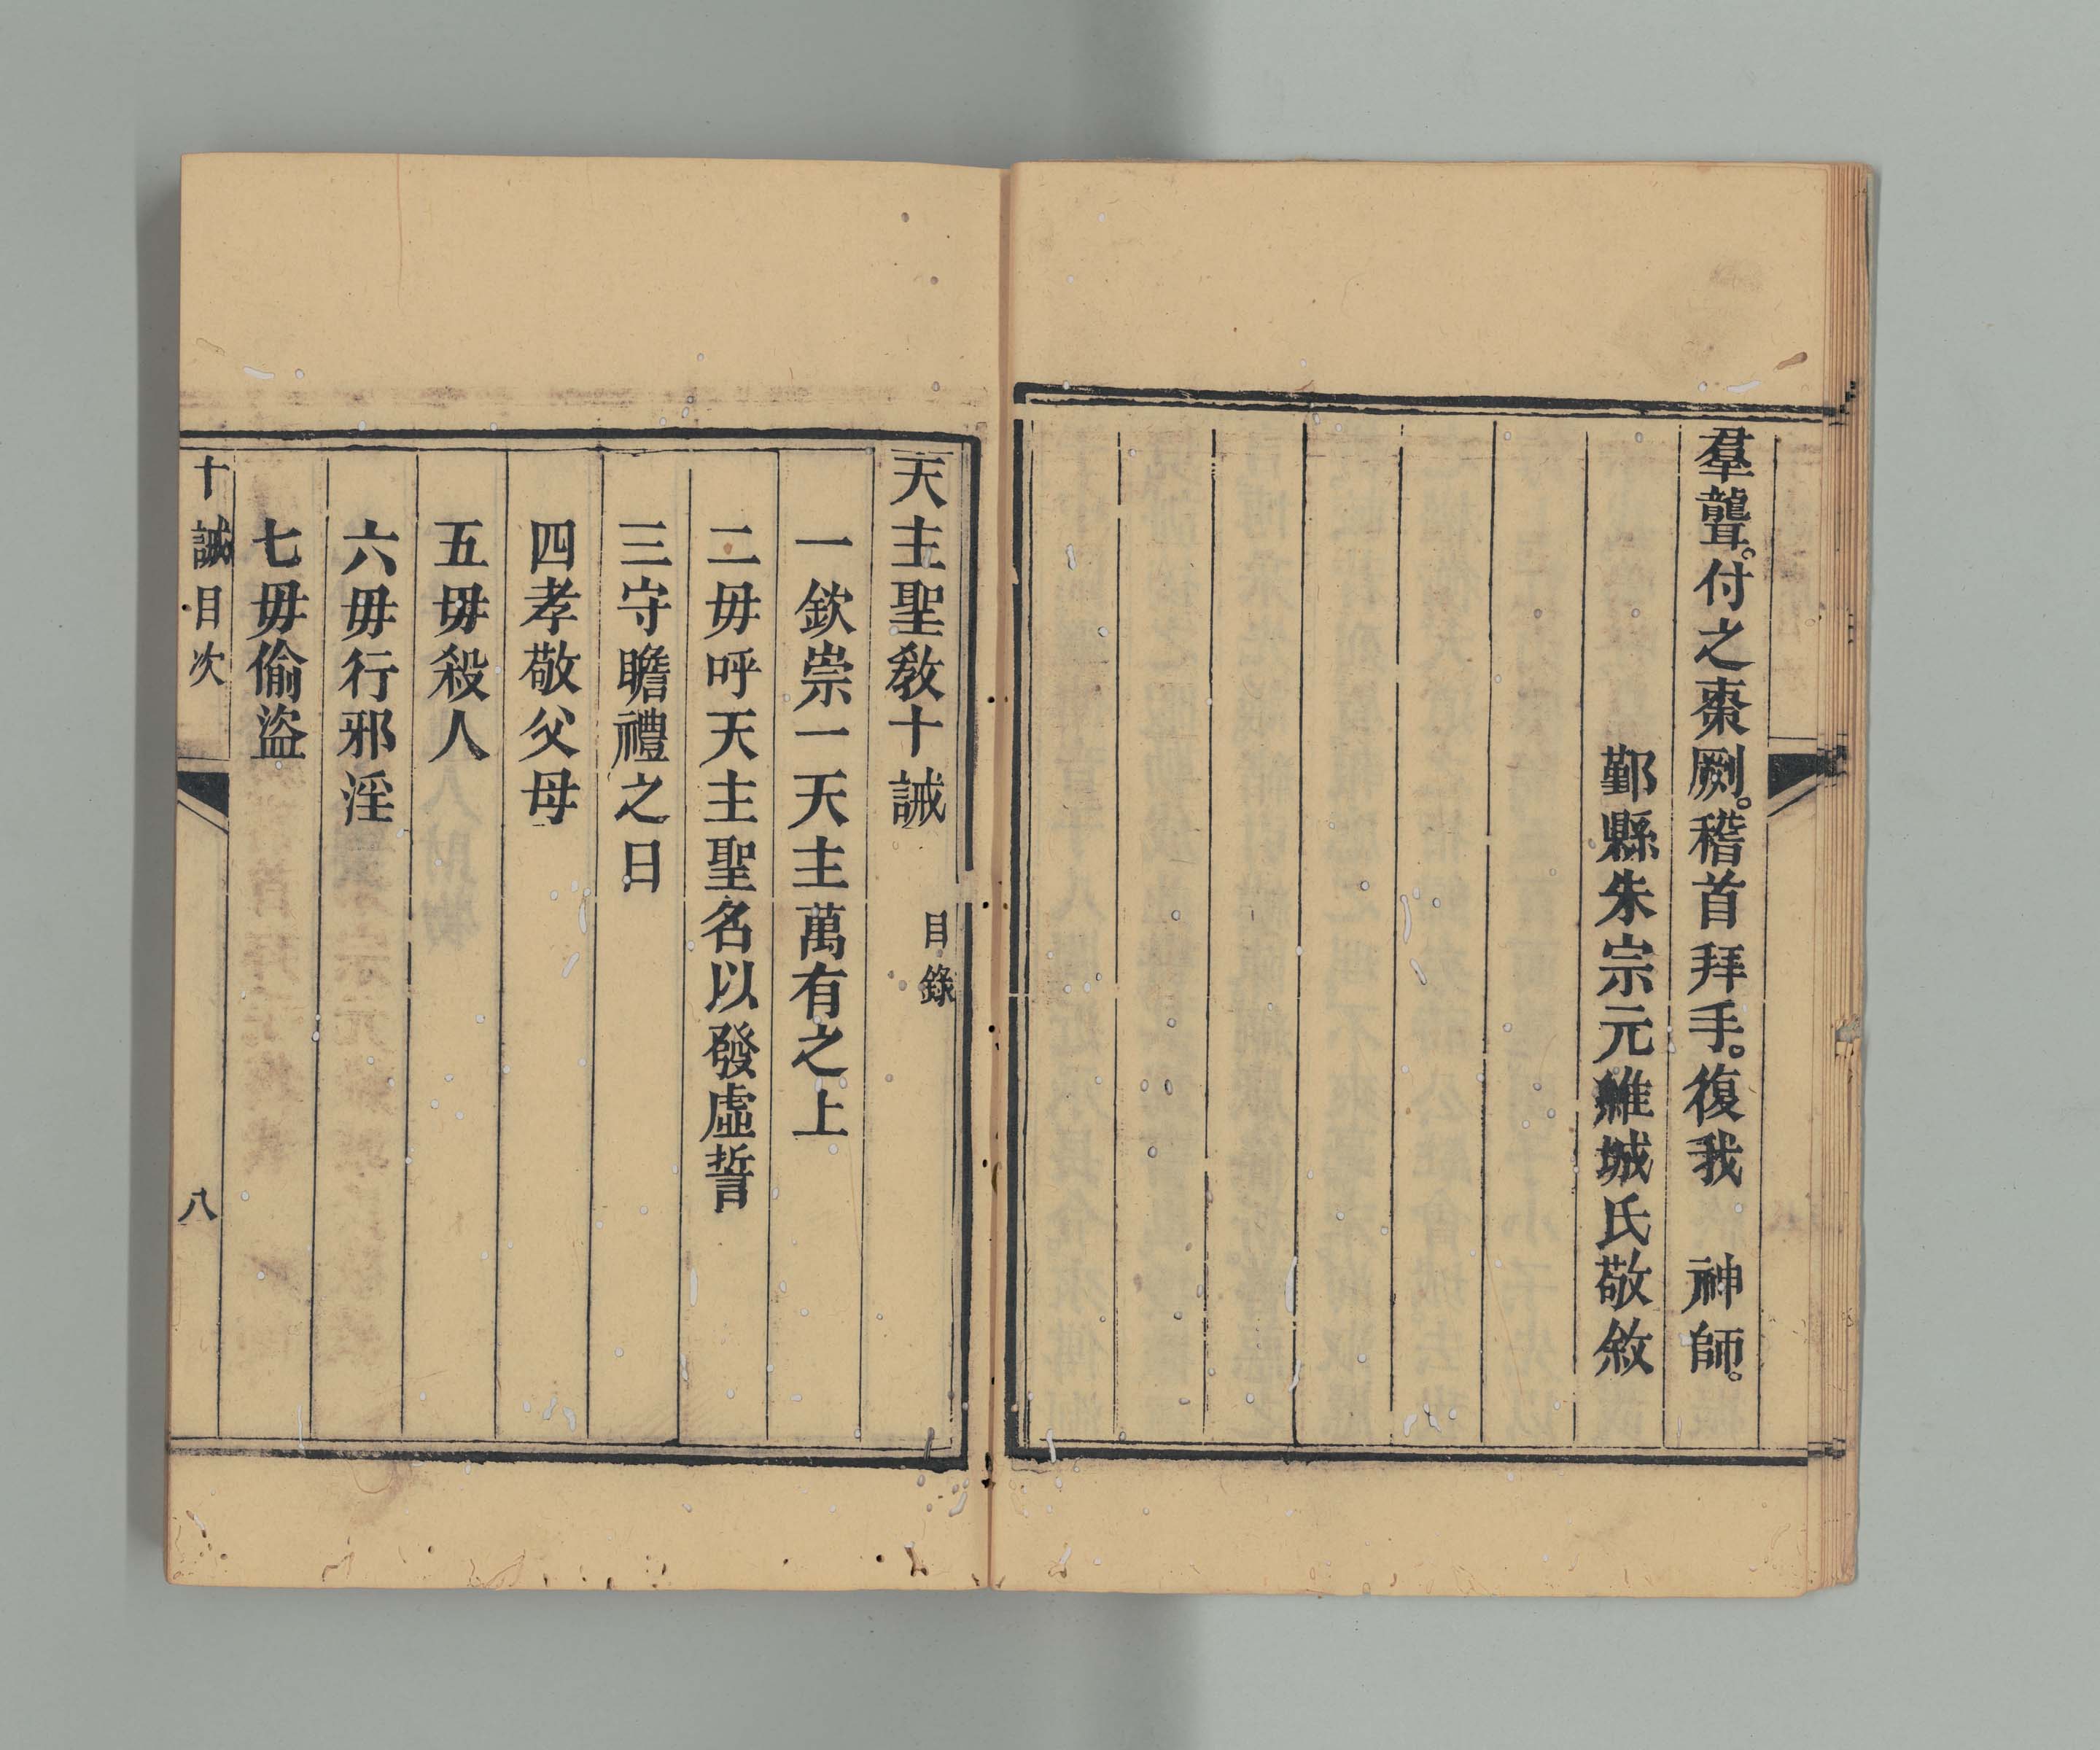 羣聾。付之棗劂。稽首拜手。復我　神師。
鄞縣朱宗元維城氏敬敘
天主聖教十誡
目錄
一欽崇一天主萬有之上
二毋呼天主聖名以發虛誓
三守瞻禮之日
四孝敬父母
五毋殺人
六毋行邪淫
七毋偷盜
十誡目次　八